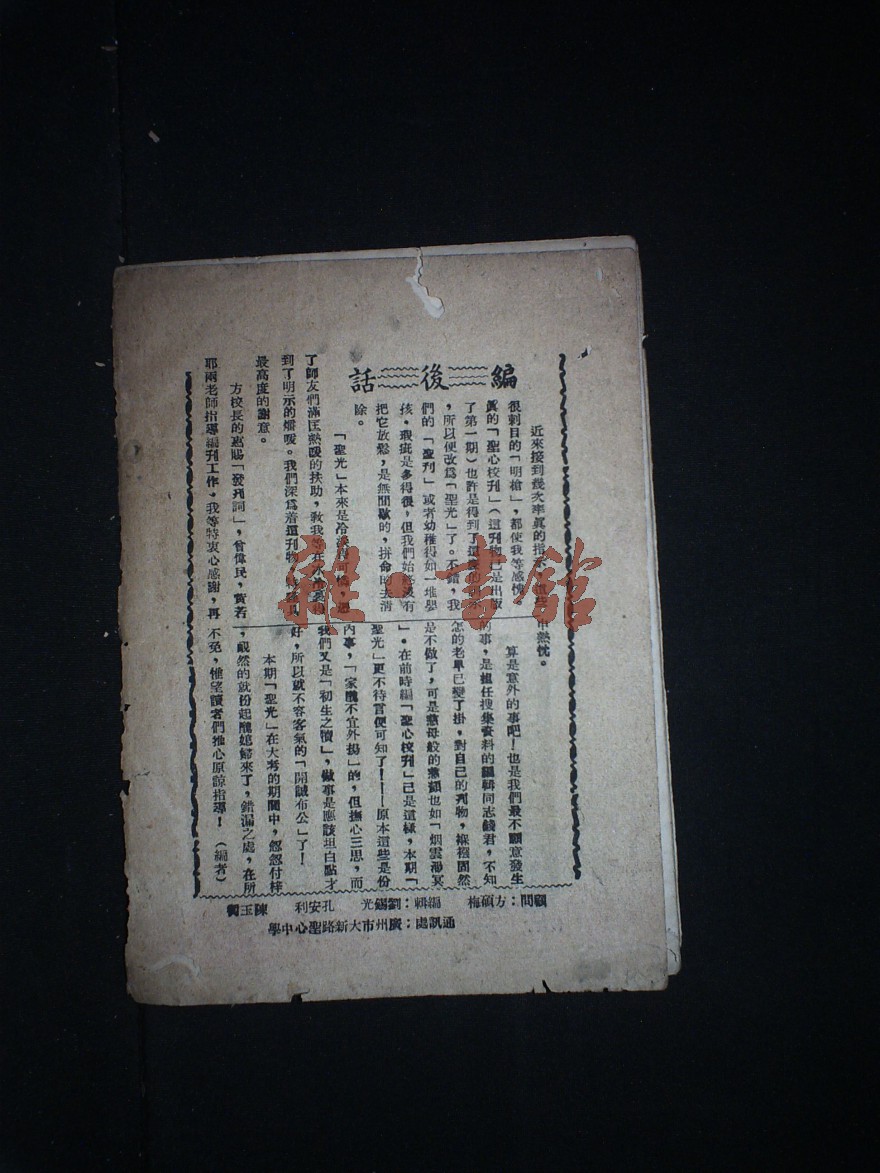 編後話
近來接到幾次率眞的指示，
很刺目的「明槍」，都使我等感愧。
眞的「聖心校刋」（這刋物已是出版
了第一期）也許是得到了
，所以便改爲「聖光」了。不錯，我
們的「聖刋」或者幼稚得如一堆嬰
孩。瑕疵是多得很，但我們始終沒有
把它放鬆，是無間歇的，拚命的去淸
除。
「聖光」本來是冷淡得可憐，
了師友們滿匡熱暖的扶助，敎我等在
到了明示的燈暖。我們深爲着這刋物
最高度的謝意。
方校長的惠賜「發刋詞」，曾偉民，黃若
耶兩老師指導編刋工作。我等特衷心感謝，再
中熱忱。
算是意外的事吧！也是我們最不願意發生
的事，是担任搜集資料的編輯同志錢君，不知
怎的老早已變了掛，對自己的刋物，褓襁固然
是不做了，可是慈母般的慈顏也如「烟雲渺冥
」。在前時編「聖心校刋」已是這樣，本期「
聖光」更不待言便可知了！——原本這些是份
內事，「家醜不宜外揚」的，但撫心三思，而
我們又是「初生之犢」，做事是應該坦白點才
好，所以就不容客氣的「開誠布公」了！
本期「聖光」在大考的期間中，怱怱付梓
，靦然的就扮起醜媳歸來了，錯漏之處，在所
不免，惟望讀者們推心原諒指導！（編者）
顧問：方碩梅　編輯：劉錫光　孔安利　陳玉
通訊處：廣州市大新路聖心中學
雜·書館